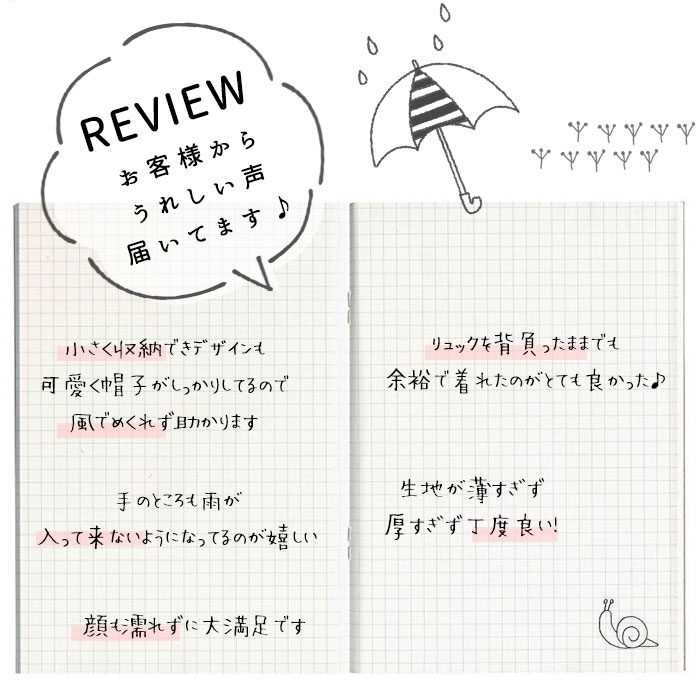 REVIEW
お客様から
うれしい声
届いてます♪
小さく収納できデザインも
可愛く帽子がしっかりしてるので
風でめくれず助かります
手のところも雨が
入って来ないようになってるのが嬉しい
顔も濡れずに大満足です
リュックを背負ったままでも
余裕で着れたのがとても良かった♪
生地が薄すぎず
厚すぎず丁度良い!